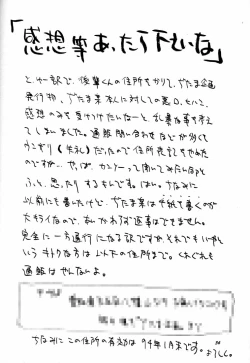 「感想等あったら下さいな」
と、いう訳で、後輩くんの住所をかりて、でたま企画
発行物、でたま某本人に対しての悪口、ヒハン、
感想のみを受けつけたいなーと、乱暴な事を考え
てしまいました。通販問い合わせなどが多くて
うんざり(失礼)だったので住所表記をやめた
のですが…。やっぱ、カンソーって聞いてみたいなと
ふと、思ったりするもんです。はい。ちなみに
以前にも書いたけど、でたま某は手紙書くのが
大キライなので、おしかわず返事はできません。
完全に一方通行になる訳ですが、それでもいいや
というキトクな方は以下の住所まで。くれぐれも
通販はやんないよ。
ちなみにこの住所の有効は94年1月末です。
よろしく。